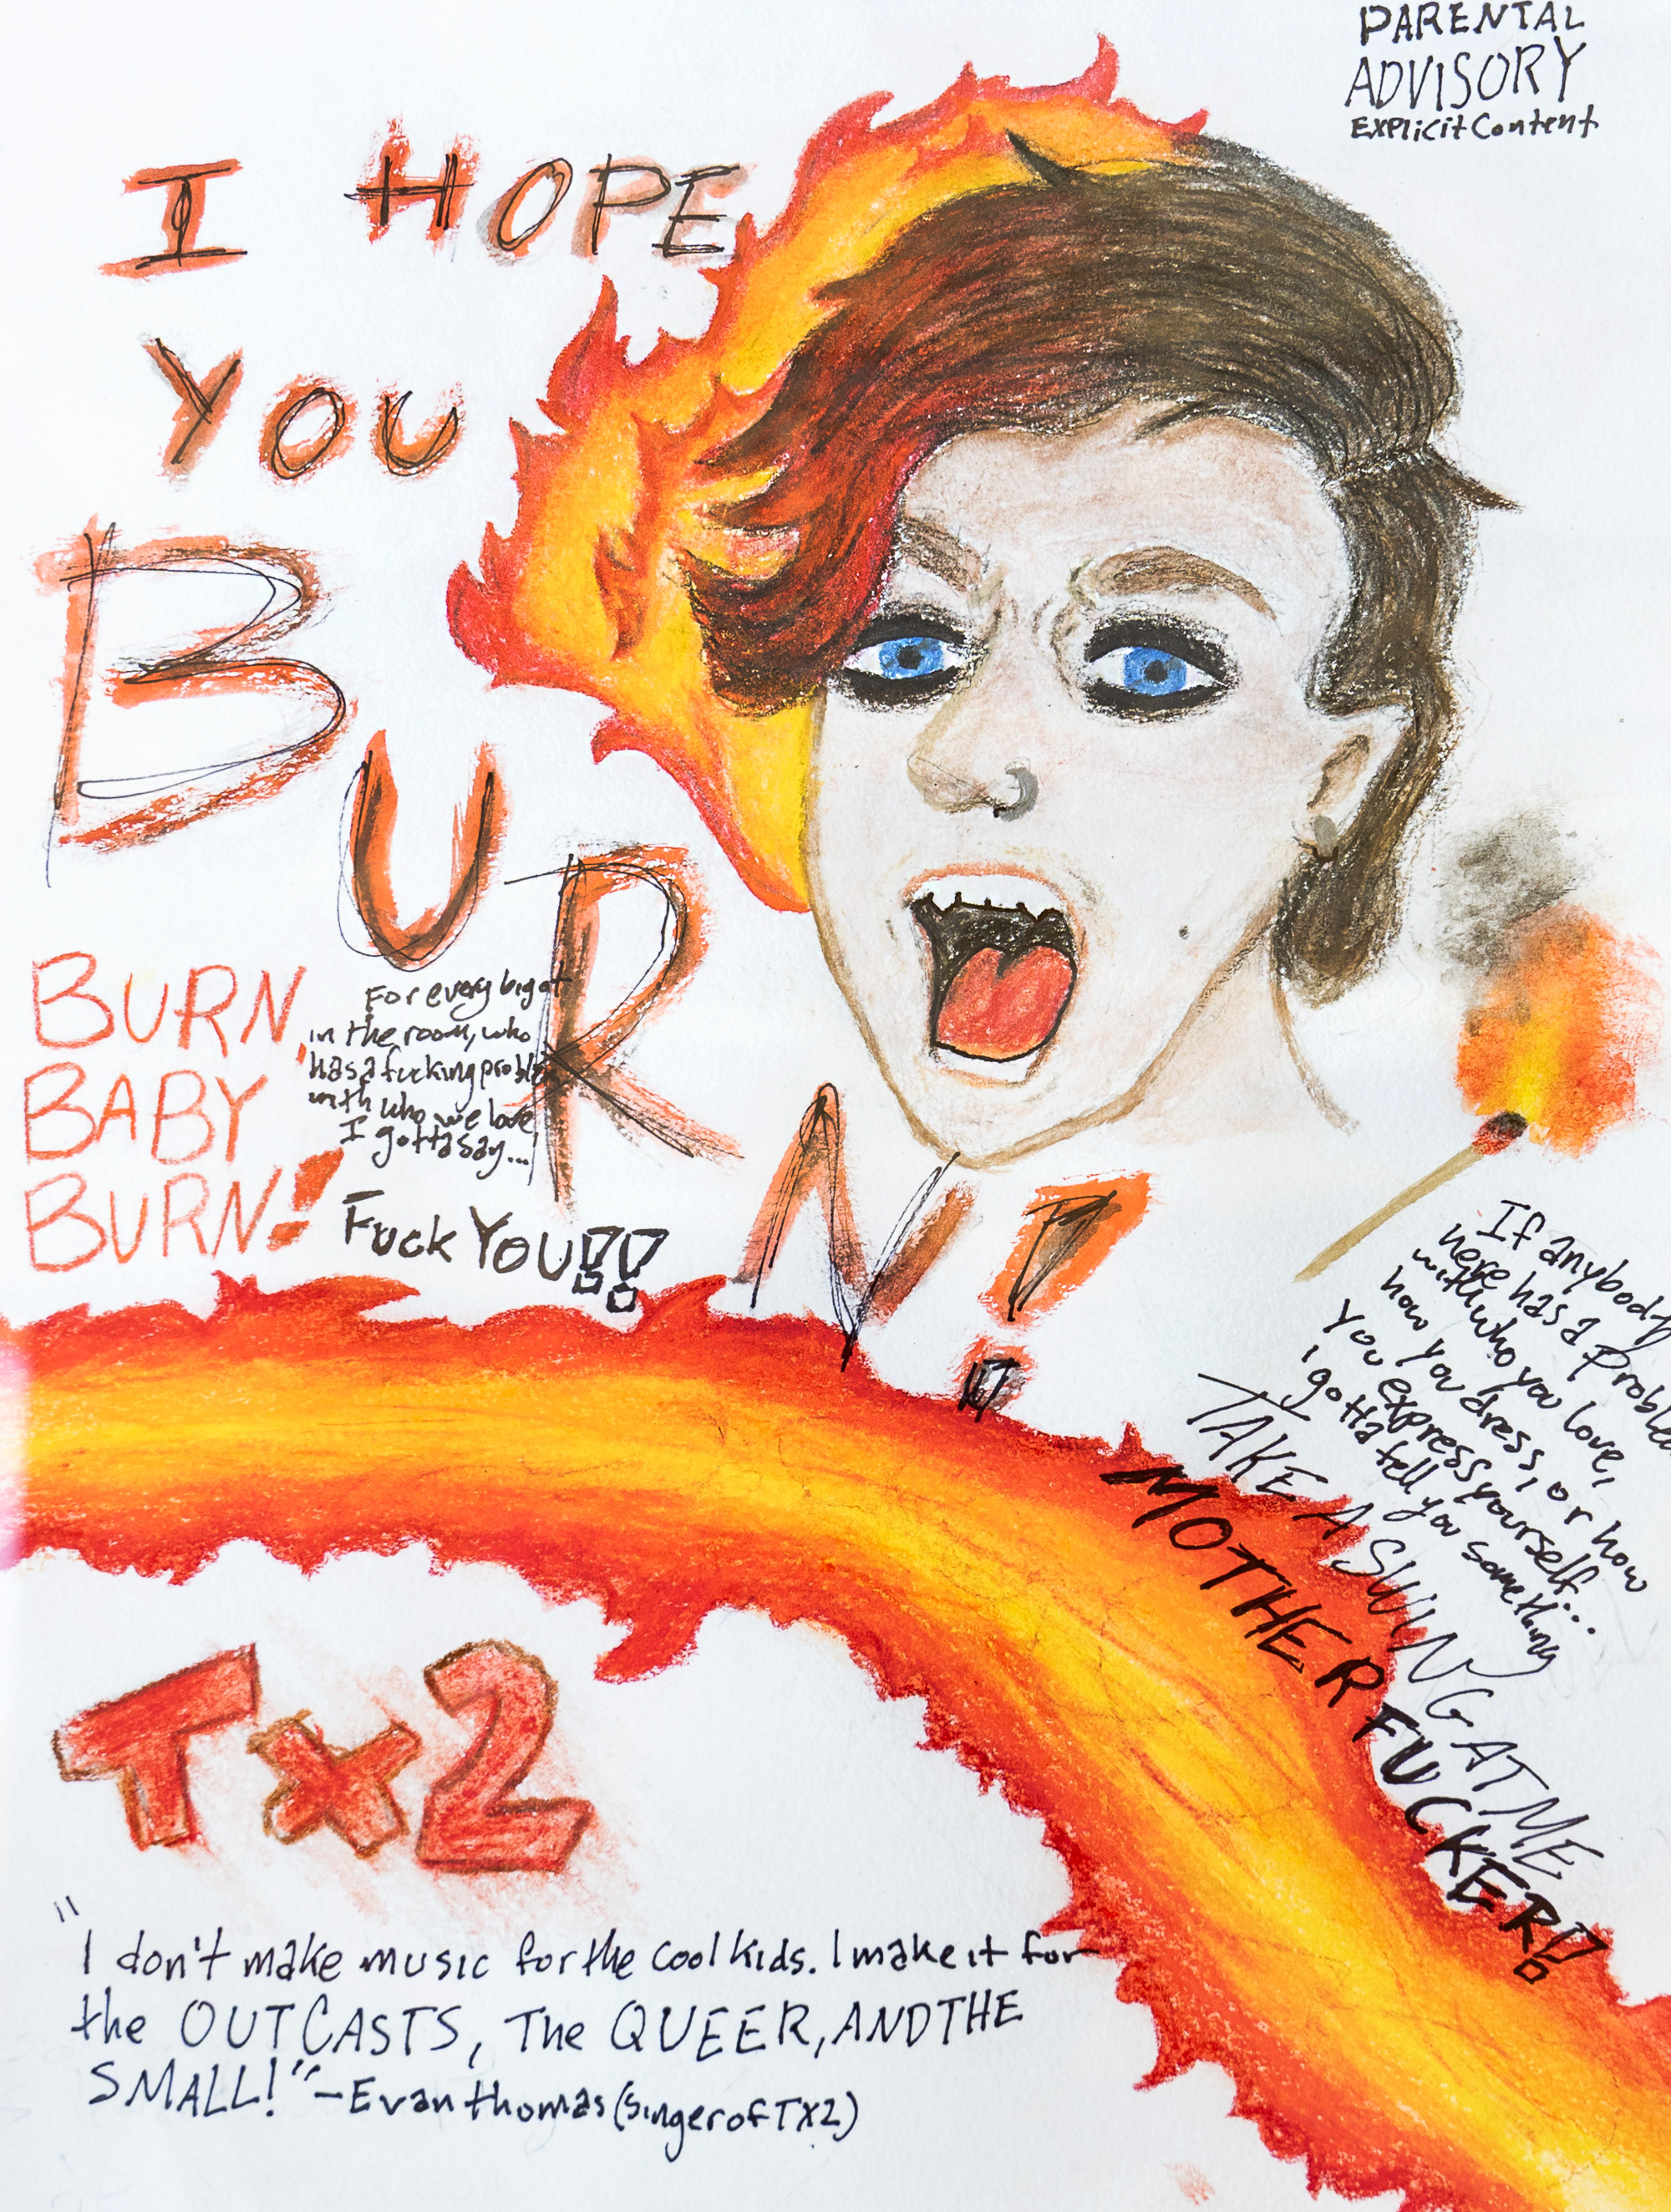 PARENTAL
ADVISORY
Explicit Content
I HOPE
YOU
BURN!
BURN,
BABY
BURN!
For every bigot
in the room, who
has a fucking problem
with who we love,
I gotta say...
Fuck YOU!!
If anybody
here has a problem
with who you love,
how you dress, or how
you express yourself...
i gotta tell you something
TAKE A SWING AT ME
MOTHERFUCKER!!
Tx2
"I don't make music for the cool kids. I make it for
the OUTCASTS, The QUEER, AND THE
SMALL!" - Evan thomas (Singer of TX2)